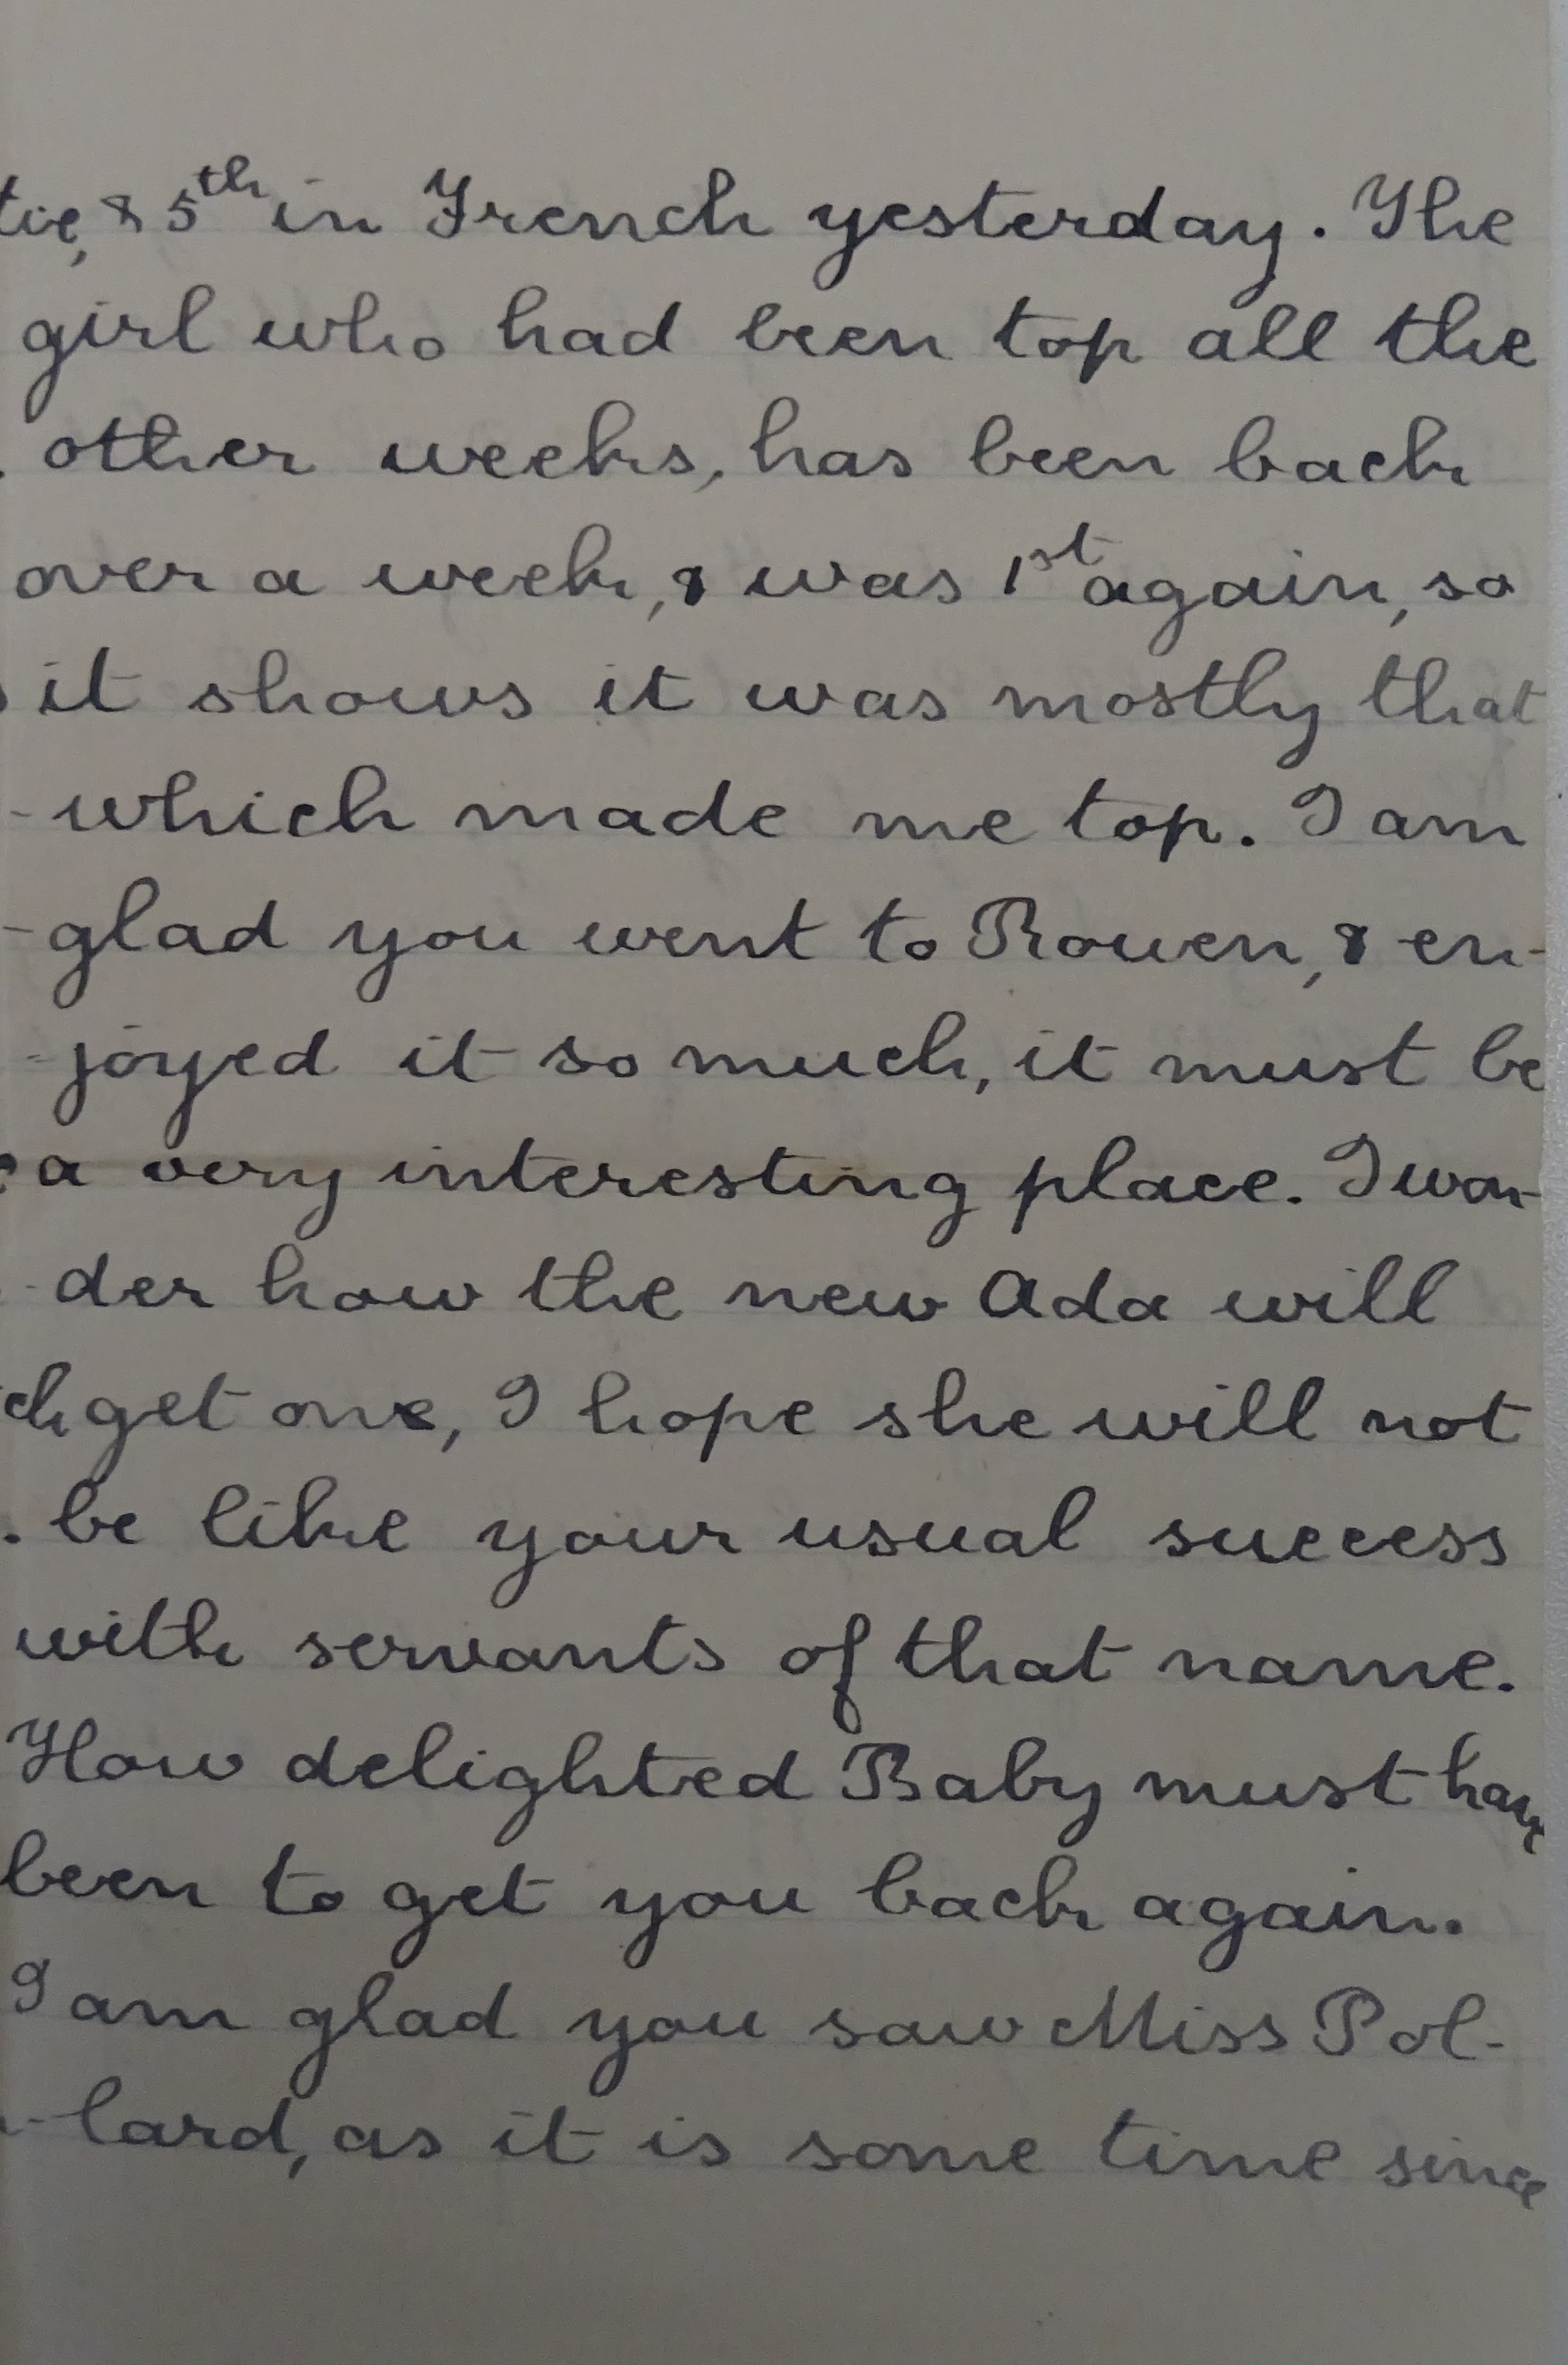 tie, & 5th in French yesterday. The
girl who had been top all the
other weeks, has been back
over a week, & was 1st again, so
it shows it was mostly that
which made me top. I am
glad you went to Rouen, & en-
-joyed it so much, it must be
a very interesting place. I won-
-der how the new Ada will
get one, I hope she will not
be like your usual success
with servants of that name.
How delighted Baby must have
been to get you back again.
I am glad you saw Miss Pol-
-lard, as it is some time since